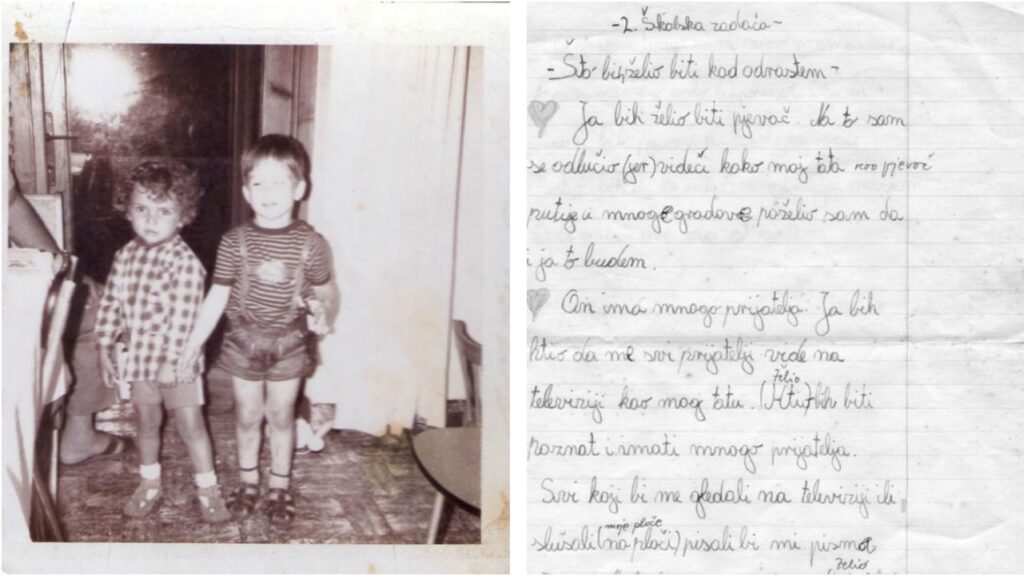 -2. Školska zadaća-
-Što bih želio biti kad odrastem-
Ja bih želio biti pjevač. Na to sam
se odlučio (jer) videći kako moj tata kao pjevač
putuje u mnoge gradove poželio sam da
i ja to budem.
On ima mnogo prijatelja. Ja bih
htio da me svi prijatelji vide na
želio
televiziji kao mog tatu. (Htio) bih biti
poznat i imati mnogo prijatelja.
Svi koji bi me gledali na televiziji ili
moje ploče
slušali (na ploči) pisali bi mi pisma
želio